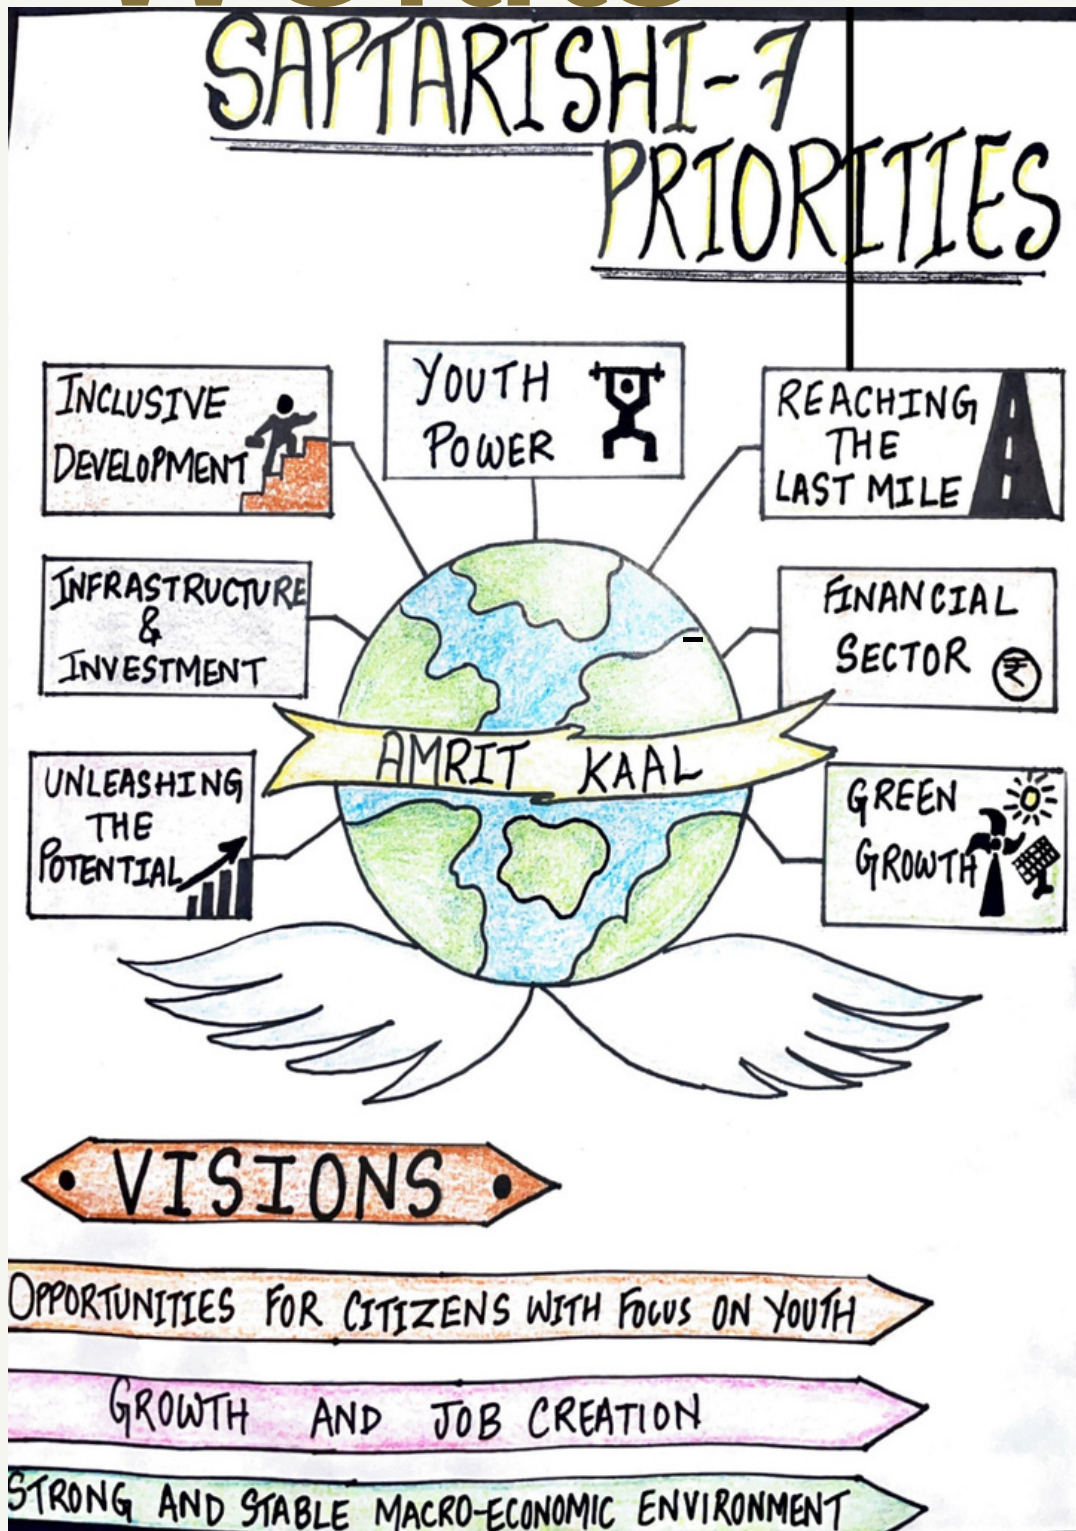 SAPTARISHI-7
PRIORITIES
INCLUSIVE
DEVELOPMENT
YOUTH
POWER
REACHING
THE
LAST MILE
INFRASTRUCTURE
&
INVESTMENT
FINANCIAL
SECTOR
₹
AMRIT KAAL
UNLEASHING
THE
POTENTIAL
GREEN
GROWTH
VISIONS
OPPORTUNITIES FOR CITIZENS WITH FOCUS ON YOUTH
GROWTH AND JOB CREATION
STRONG AND STABLE MACRO-ECONOMIC ENVIRONMENT